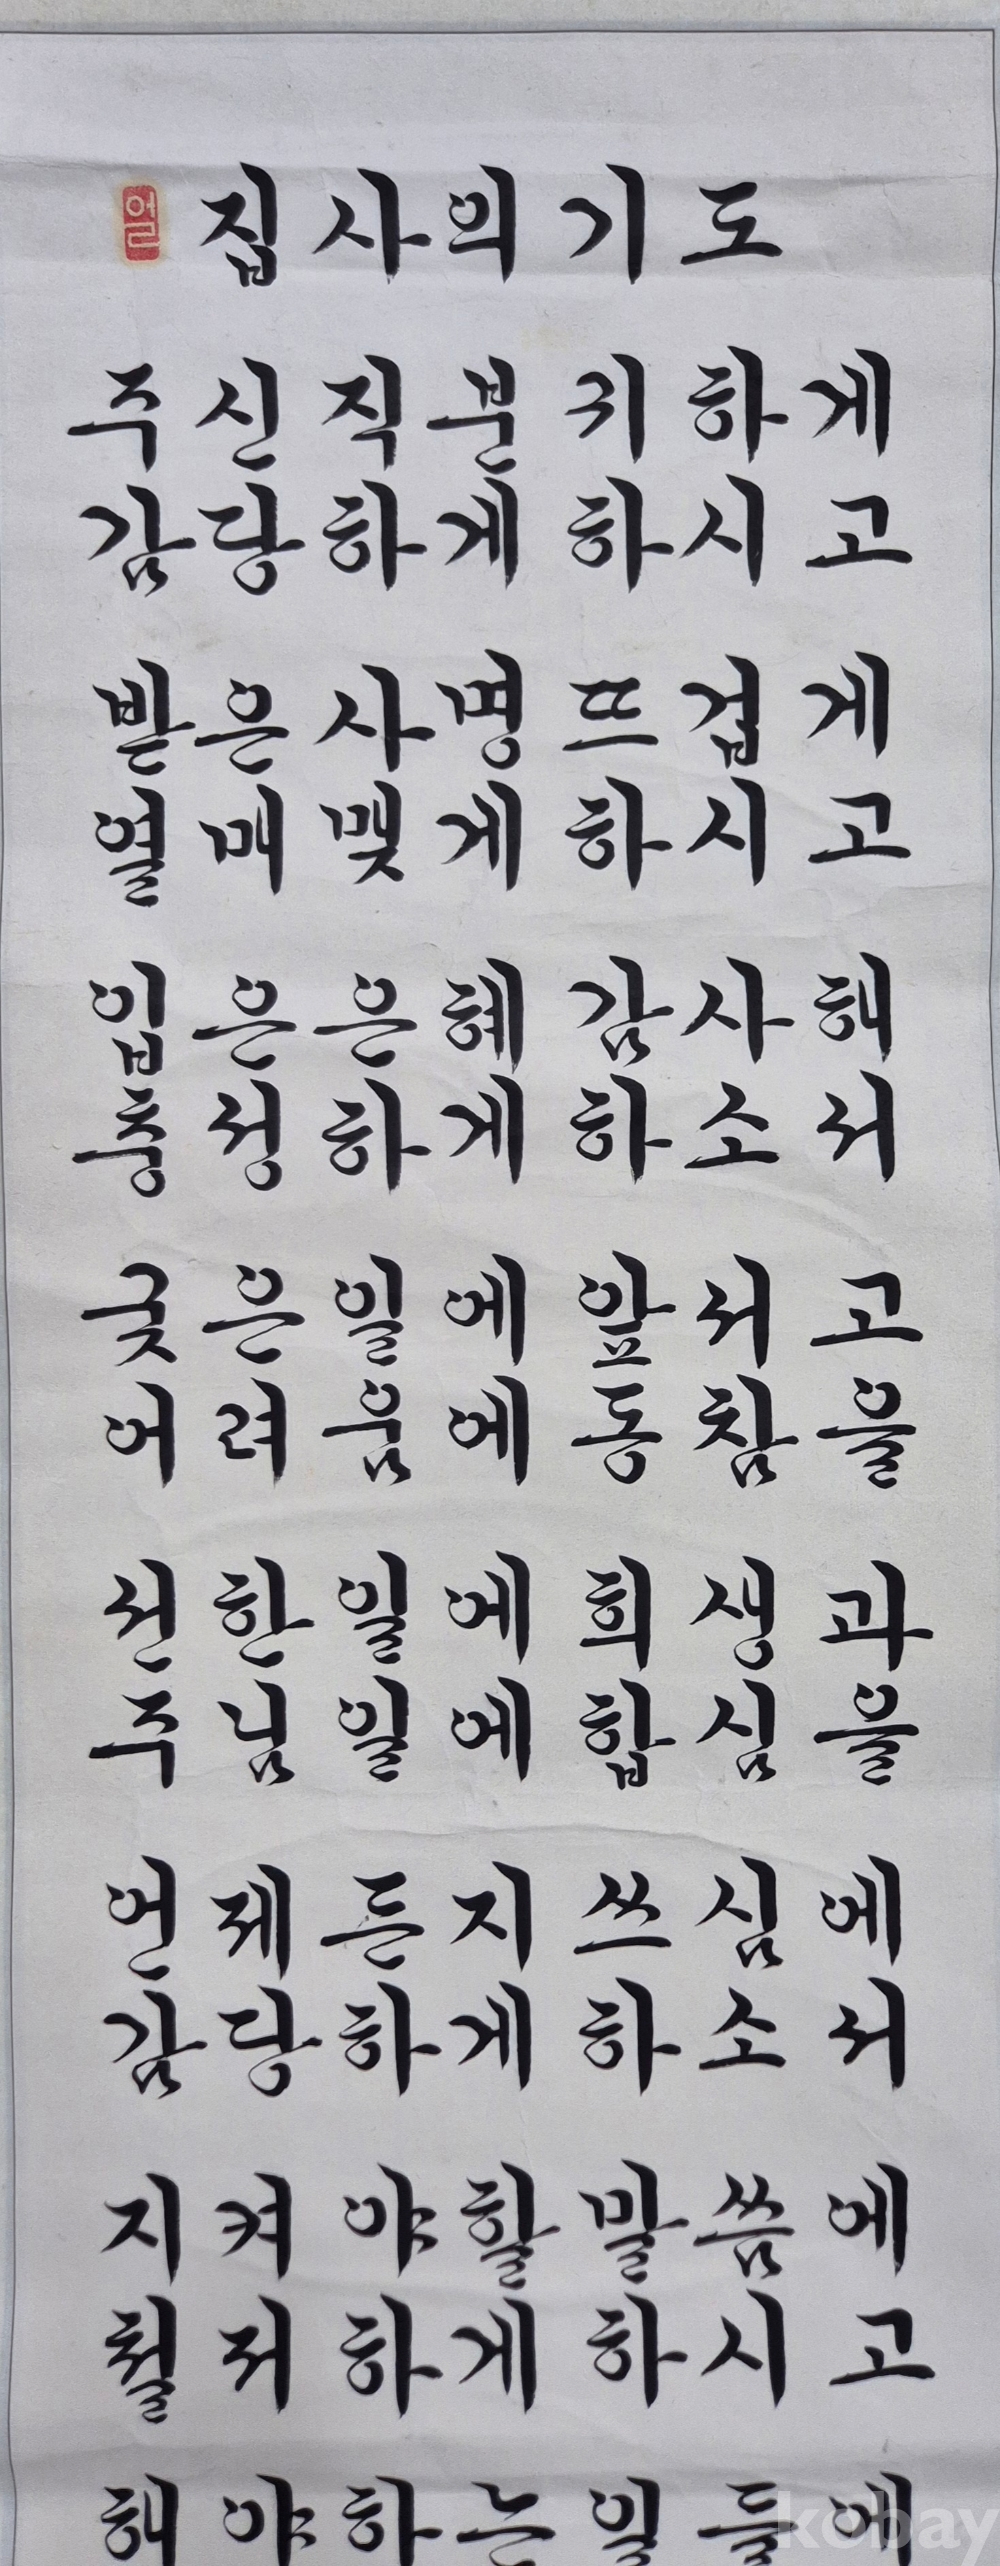 집사의기도
주신직분귀하게
감당하게하시고
받은사명뜨겁게
열매맺게하시고
입은은혜감사해
충성하게하소서
궂은일에앞서고
어려움에동참을
선한일에희생과
주님일에합심을
언제든지쓰심에
감당하게하소서
지켜야할말씀에
철저하게하시고
해야하는일들에
kobay